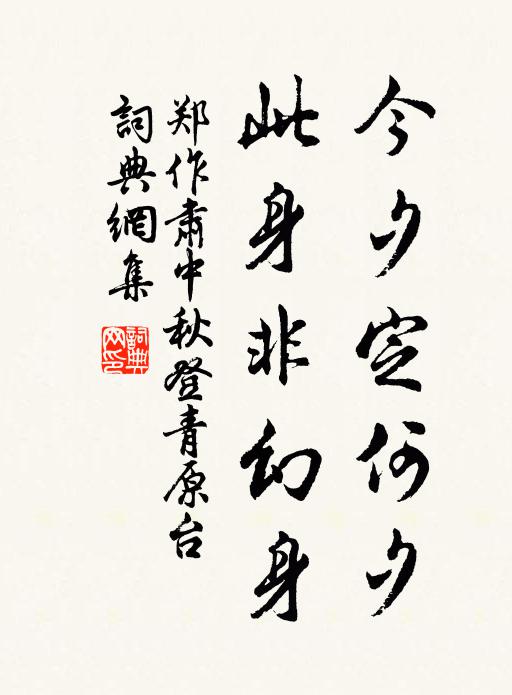 今夕定何夕
此身非幻身
郑作肃中秋登青原台
詞典網集
詞典网印